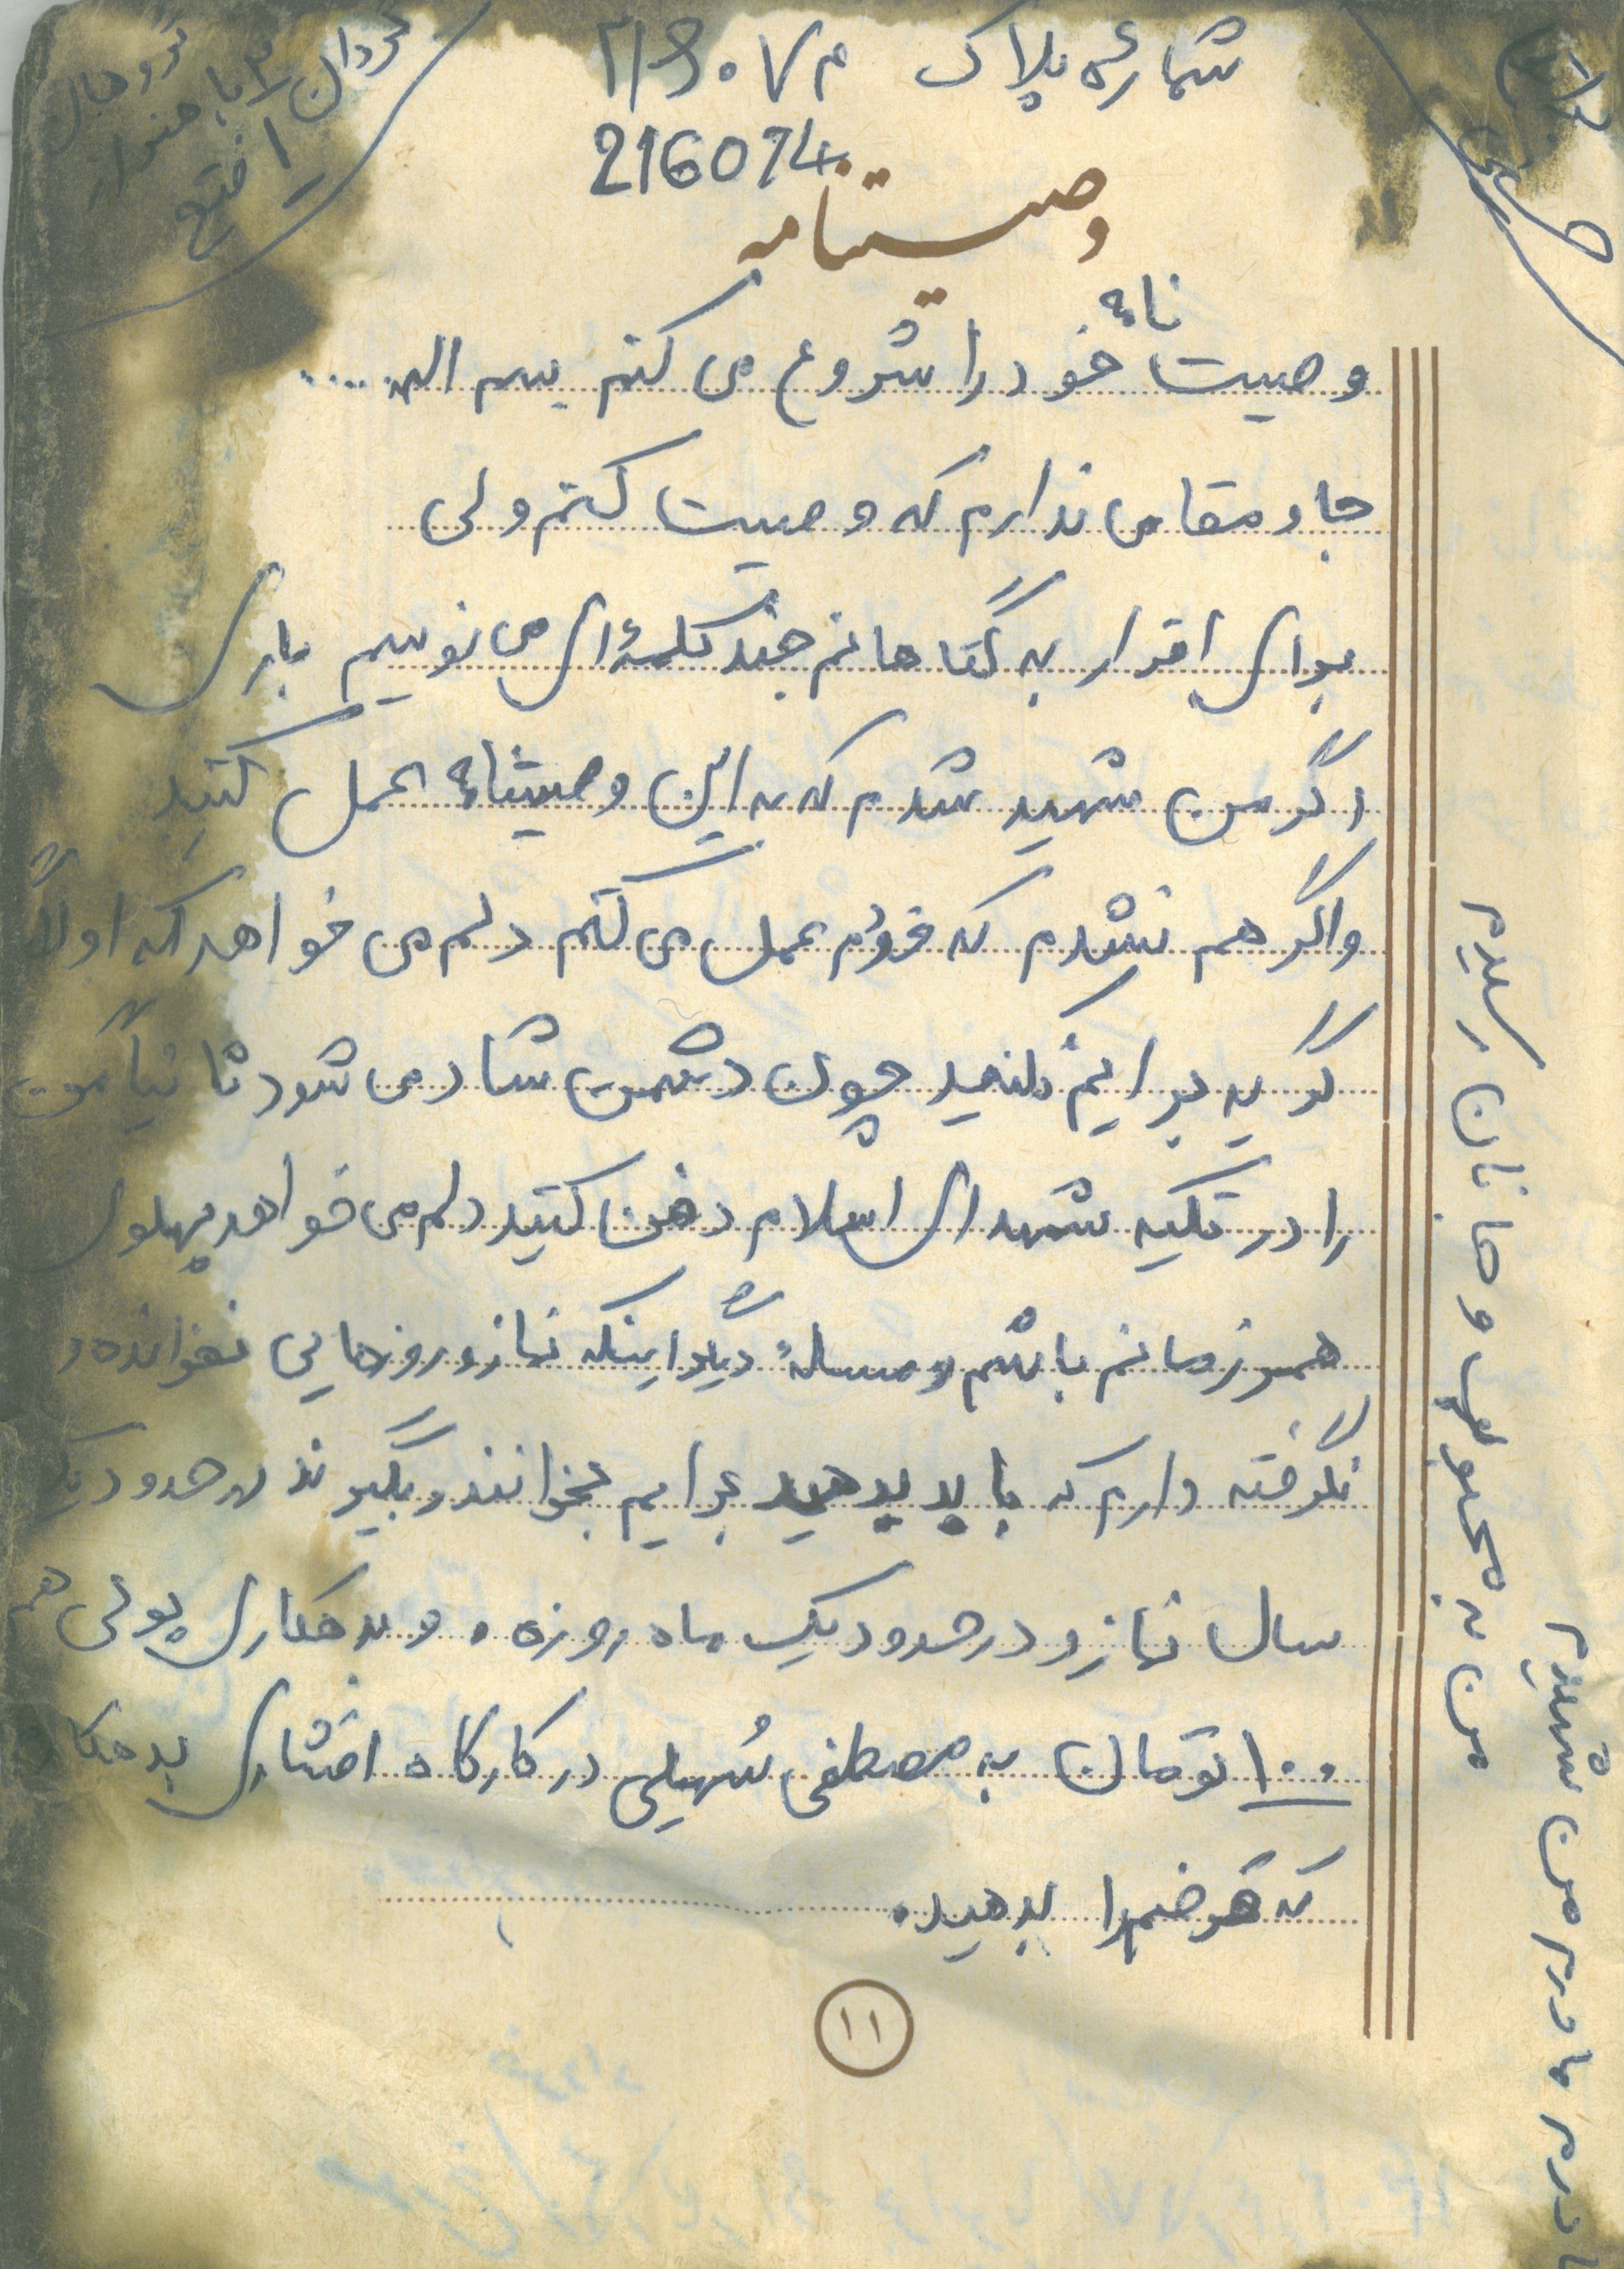 شماره پلاک ۲۱۶۰۷۴
216074
وصیتنامه
وصیت نامهٔ خود را شروع می کنم بسم الله ....
جا و مقامی ندارم که وصیت کنم ولی
برای اقرار به گناهانم چند کلمهٔ ای می نویسم باری
اگر من شهید شدم که به این وصیتنامهٔ عمل کنید
و اگر هم نشدم که خودم عمل می کنم دلم می خواهد که اولاً
گریه برایم نکنید چون دشمن شاد می شود ثانیاً من
را در تکیه شهدای اسلام دفن کنید دلم می خواهد پهلوی
همرزمانم باشم و مسالهٔ دیگر اینکه نماز و روزهایی نخوانده و
نگرفته دارم که باید بدهید برایم بخوانند و بگیرند در حدود یک
سال نماز و در حدود یک ماه روزه . و بدهکاری پولی هم
۱۰۰ تومان به مصطفی سُهیلی در کارگاه افشاری بدهکار
که قرضم را بدهید .
۱۱
من به محبوبم و جانان رسیدم
مادرم مادرم من شهیدم